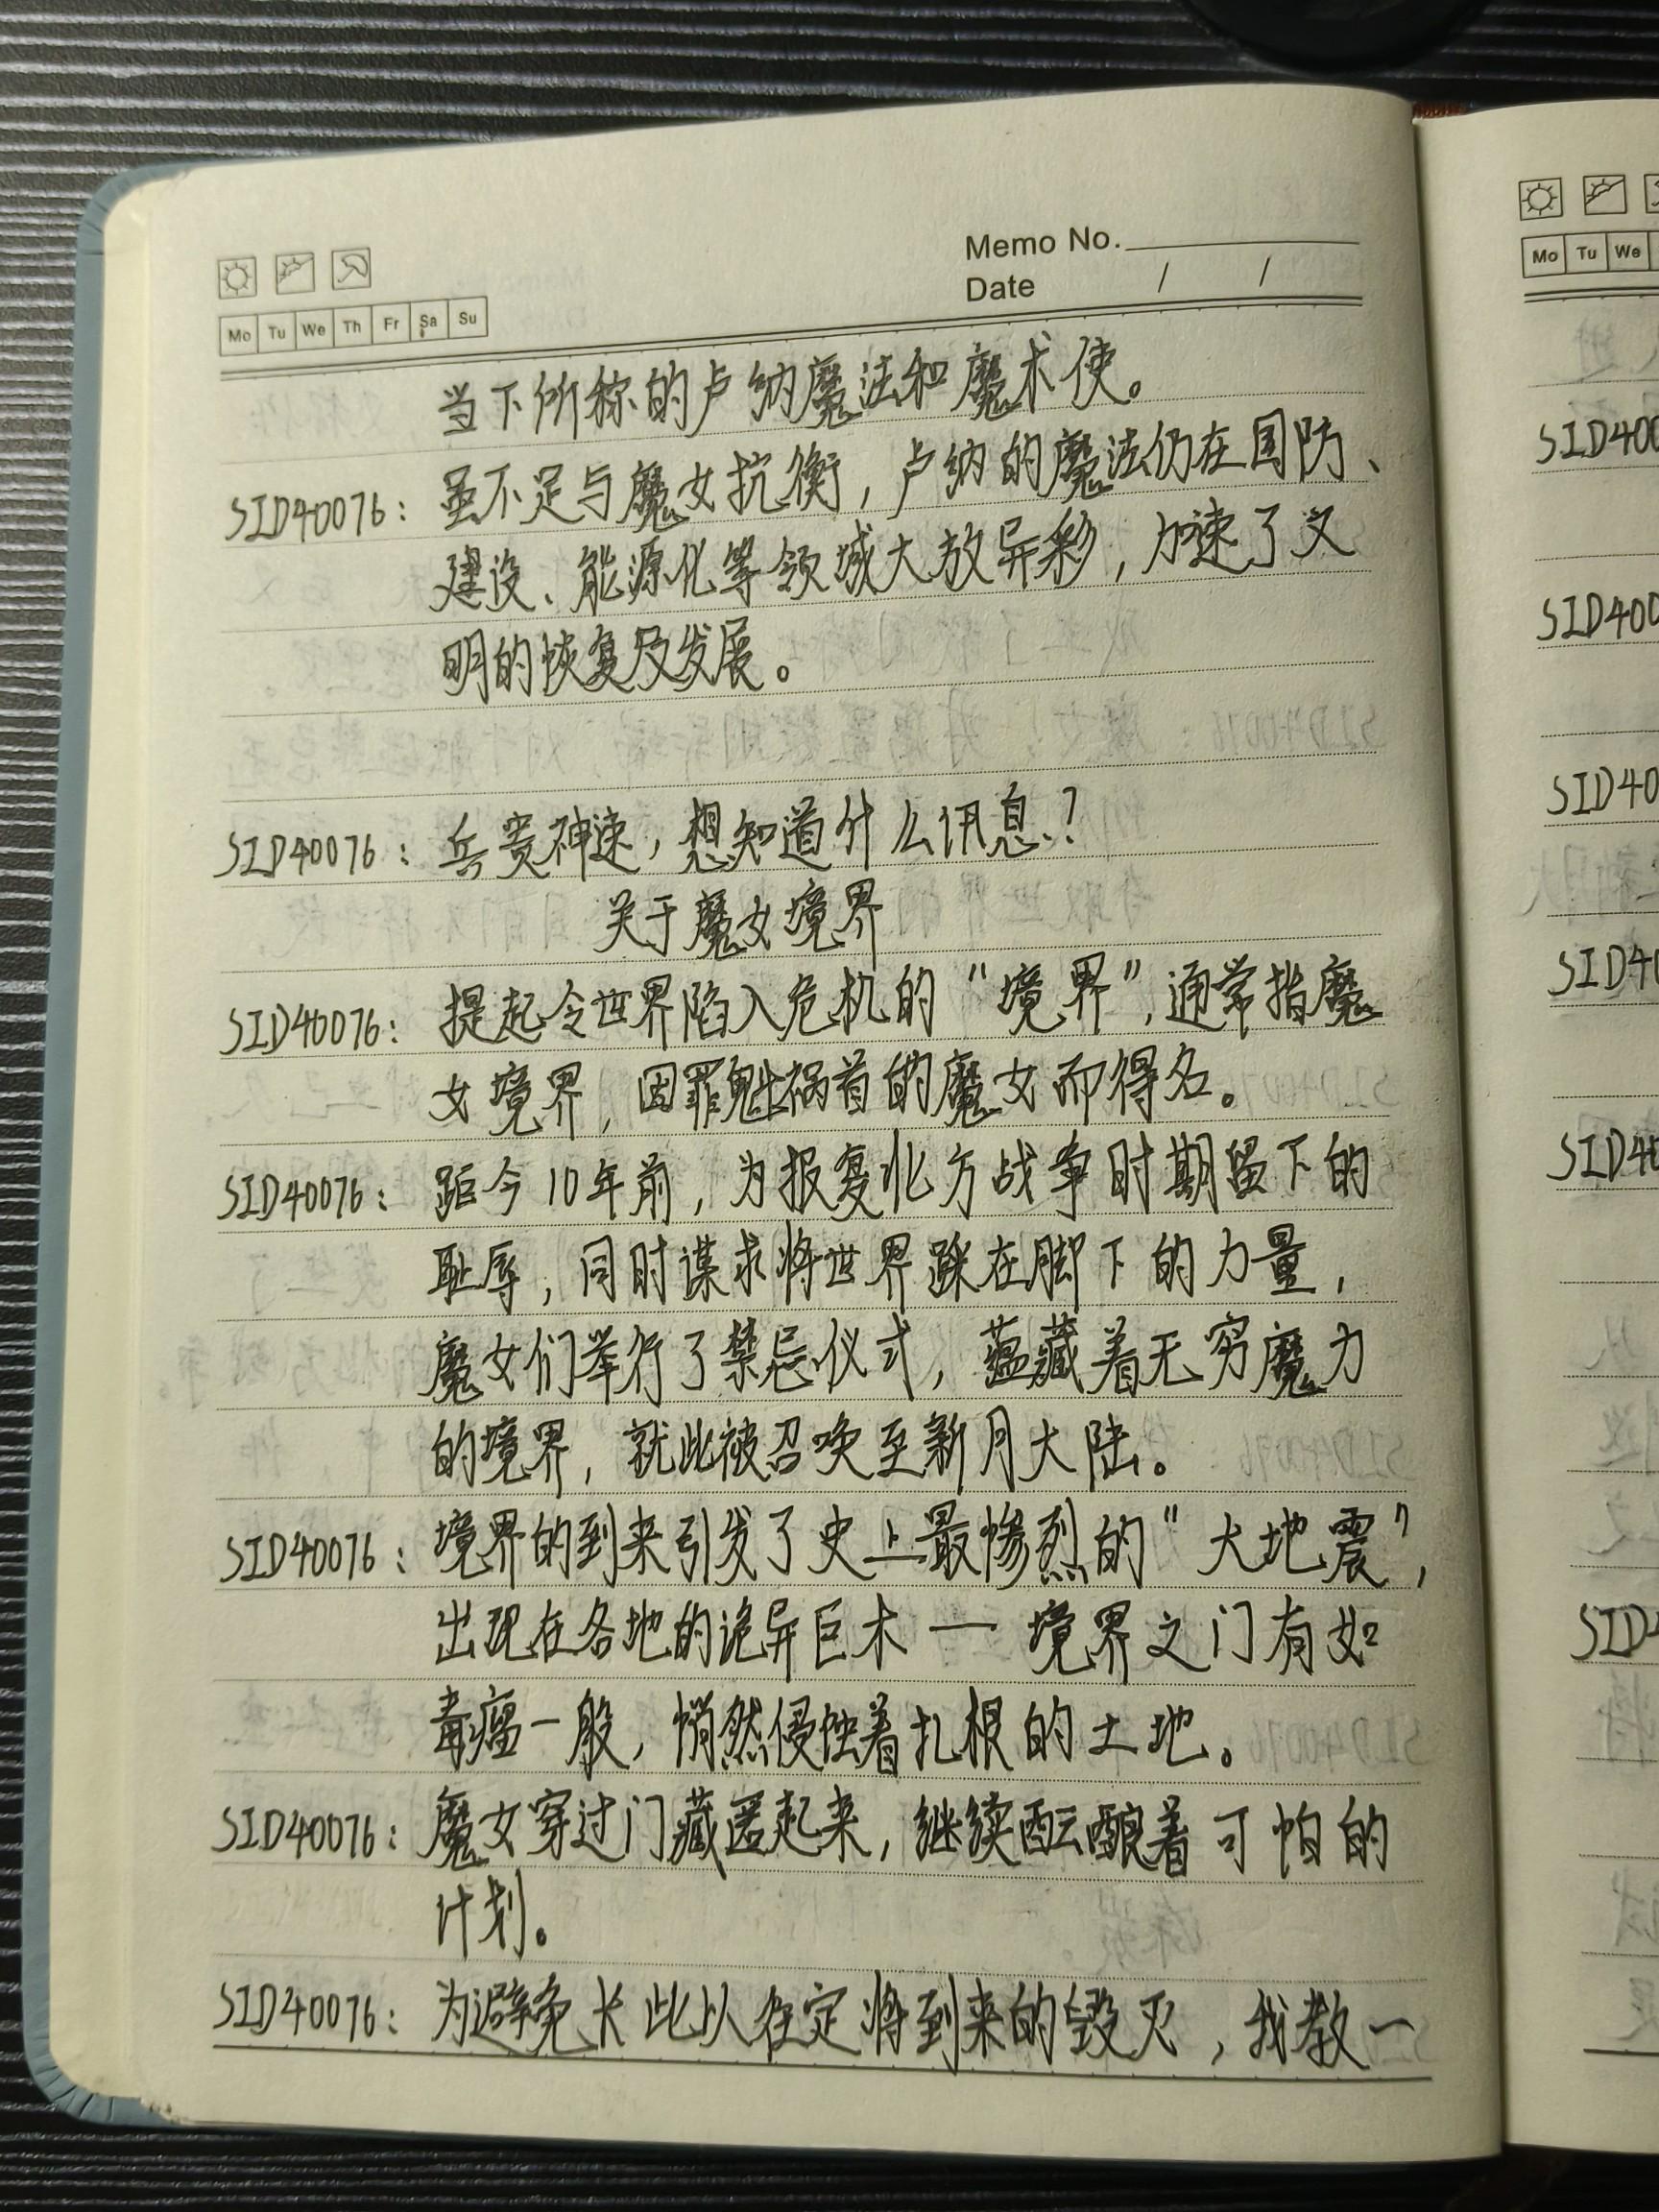 Memo No.
Date / /
Mo Tu We Th Fr Sa Su
当下所称的卢纳魔法和魔术使。
SID40076：虽不足与魔女抗衡，卢纳的魔法仍在国防、
建设、能源化等领域大放异彩，加速了文
明的恢复及发展。
SID40076：兵贵神速，想知道什么讯息？
关于魔女境界
SID40076：提起令世界陷入危机的“境界”，通常指魔
女境界，因罪魁祸首的魔女而得名。
SID40076：距今10年前，为报复北方战争时期留下的
耻辱，同时谋求将世界踩在脚下的力量，
魔女们举行了禁忌仪式，蕴藏着无穷魔力
的境界，就此被召唤至新月大陆。
SID40076：境界的到来引发了史上最惨烈的“大地震”，
出现在各地的诡异巨木一境界之门有如
毒瘤一般，悄然侵蚀着扎根的土地。
SID40076：魔女穿过门藏匿起来，继续酝酿着可怕的
计划。
SID40076：为避免长此以往定将到来的毁灭，我教一
Mo Tu We
SID400
SID400
SID40
SID40
SID40
SID4